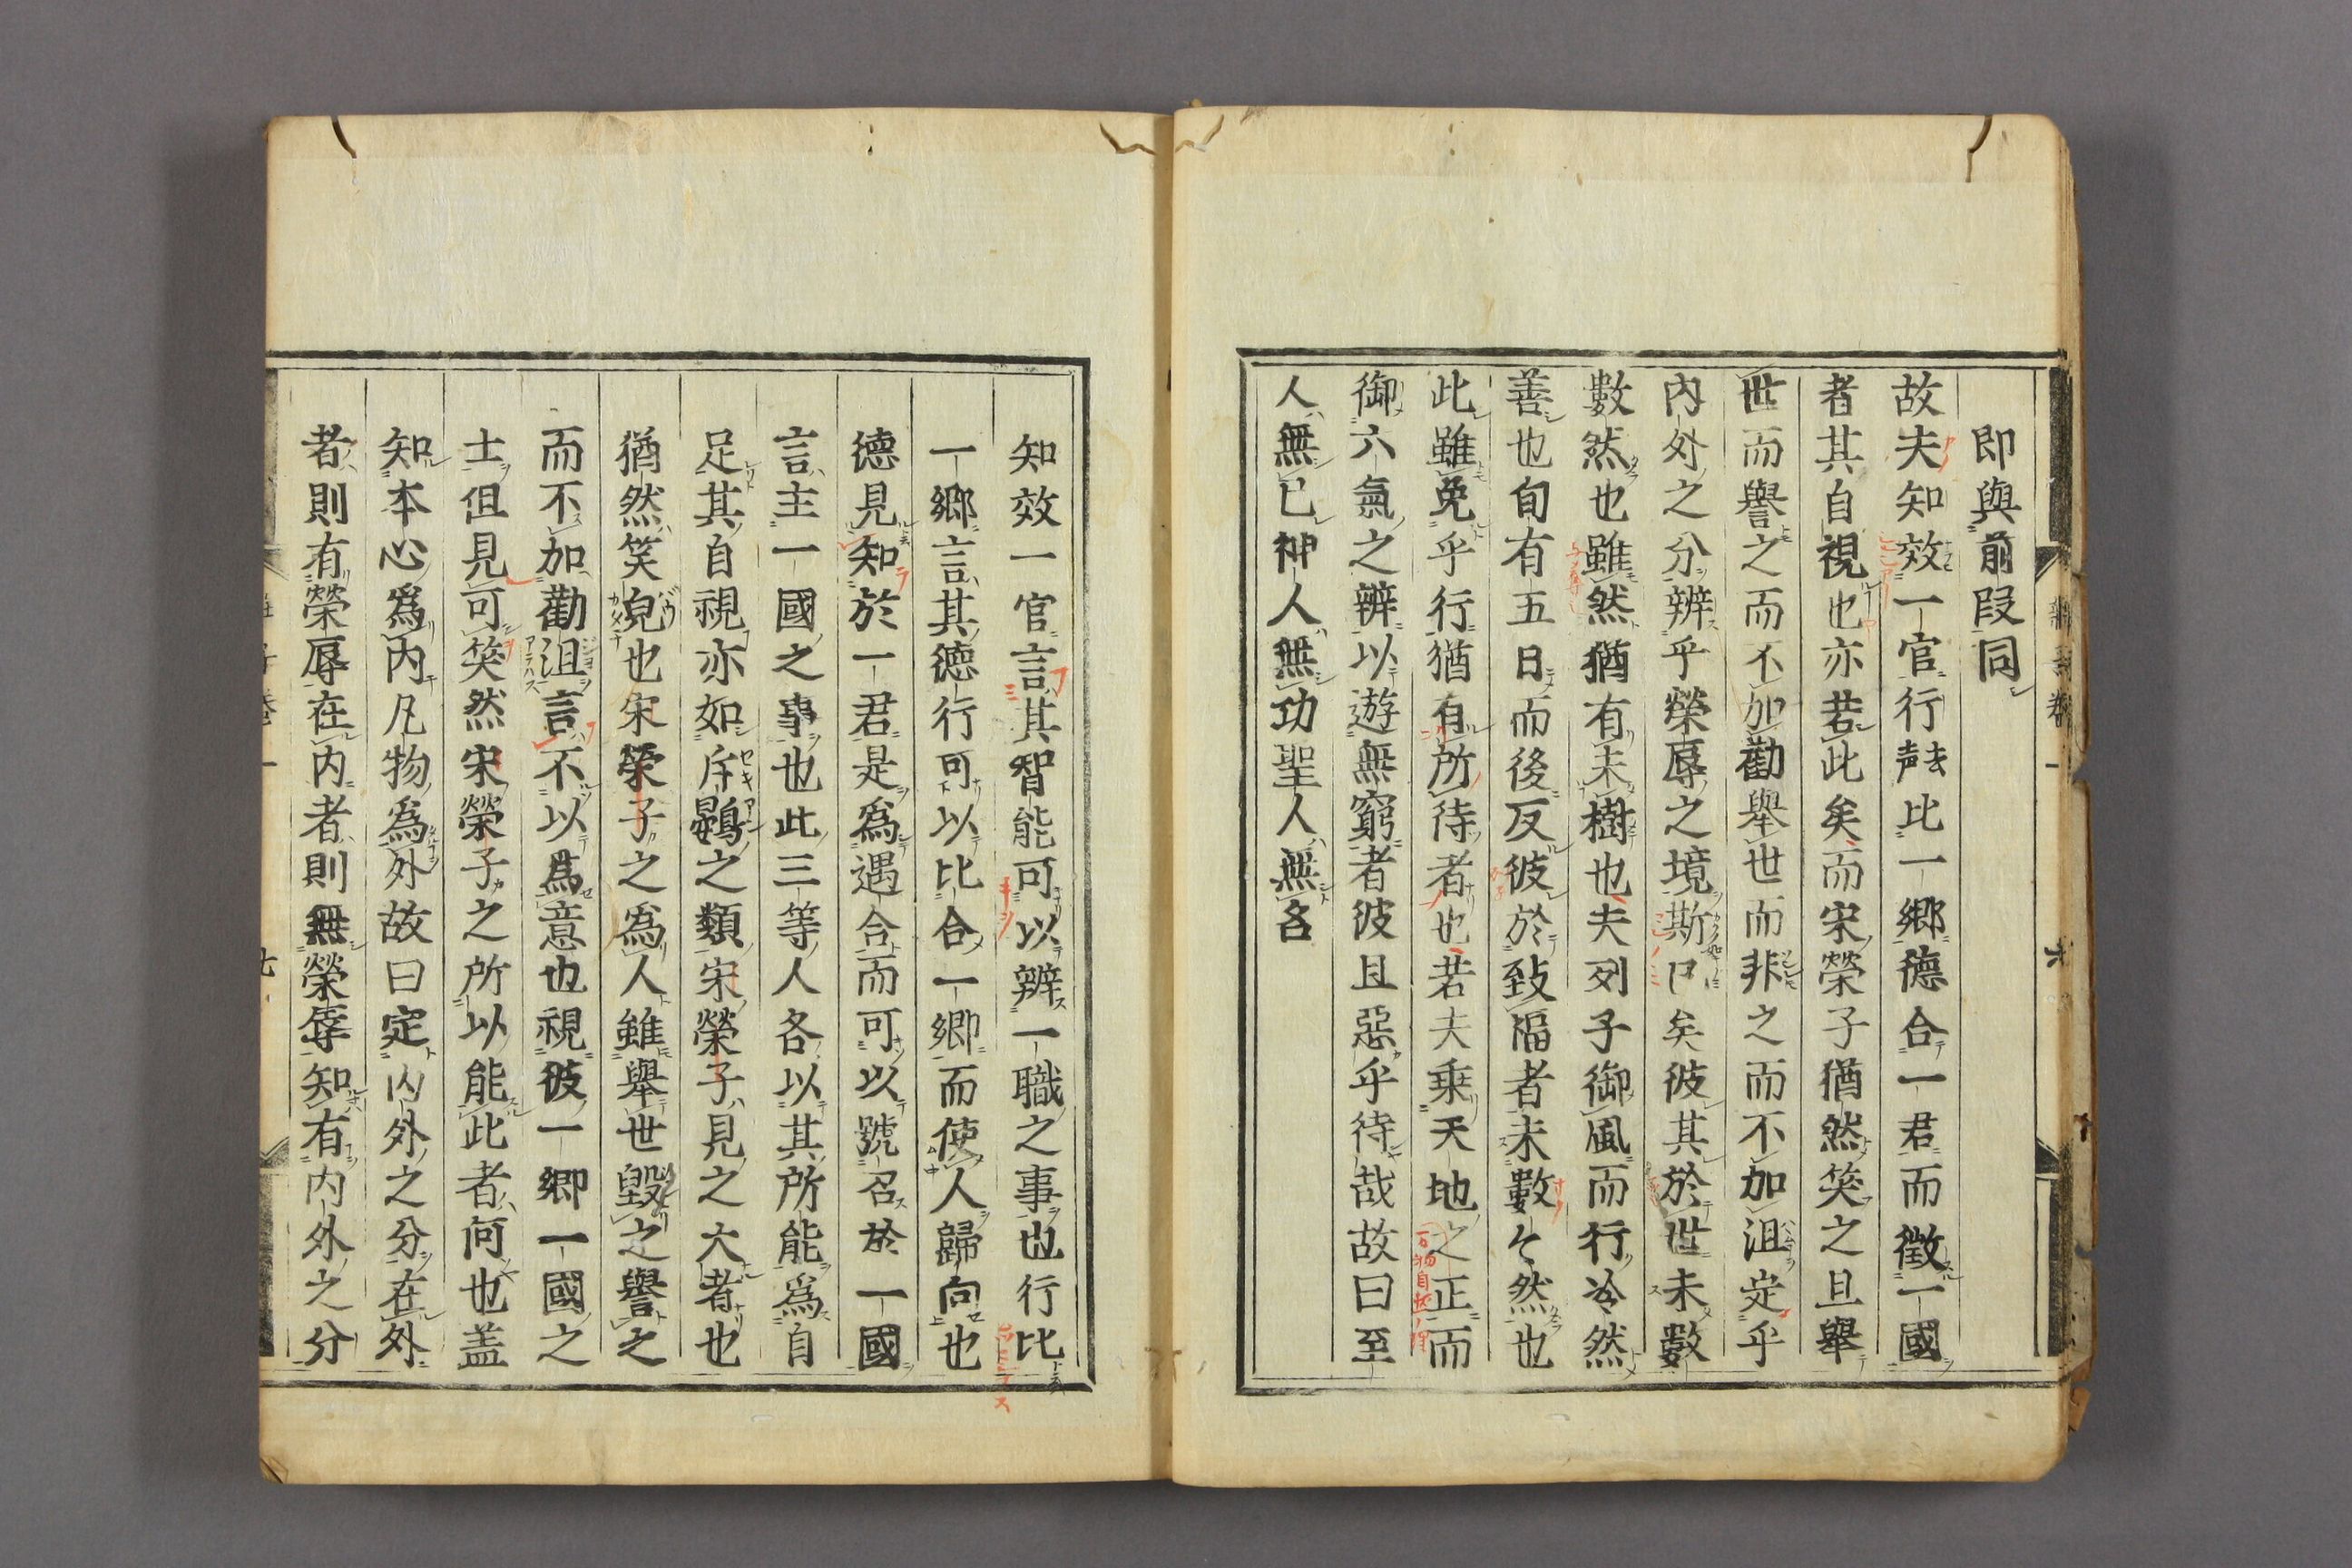 即與前段同
故夫知效一官行去声比一鄉德合一君而徵一國
者其自視也亦若此矣而宋榮子猶然笑之且舉
世而譽之而不加勸舉世而非之而不加沮定乎
內外之分辨乎榮辱之境斯已矣彼其於世未數
數然也雖然猶有未樹也夫列子御風而行泠然
善也旬有五日而後反彼於致福者未數々然也
此雖免乎行猶有所待者也若夫乗天地之正而
御六氣之辨以遊無窮者彼且惡乎待哉故曰至
人無已神人無功聖人無名
知效一官言其智能可以辨一職之事也行比
一鄉言其德行可以比合一鄉而使人歸向也
德見知於一君是爲遇合而可以號召於一國
言主一國之事也此三等人各以其所能爲自
足其自視亦如斥鷃之類宋榮子見之大者也
猶然笑皃也宋榮子之爲人雖舉世毀之譽之
而不加勸沮言不以爲意也視彼一鄉一國之
士但見可笑然宋榮子之所以能此者何也盖
知本心爲內凡物爲外故曰定內外之分在外
者則有榮辱在內者則無榮辱知有內外之分